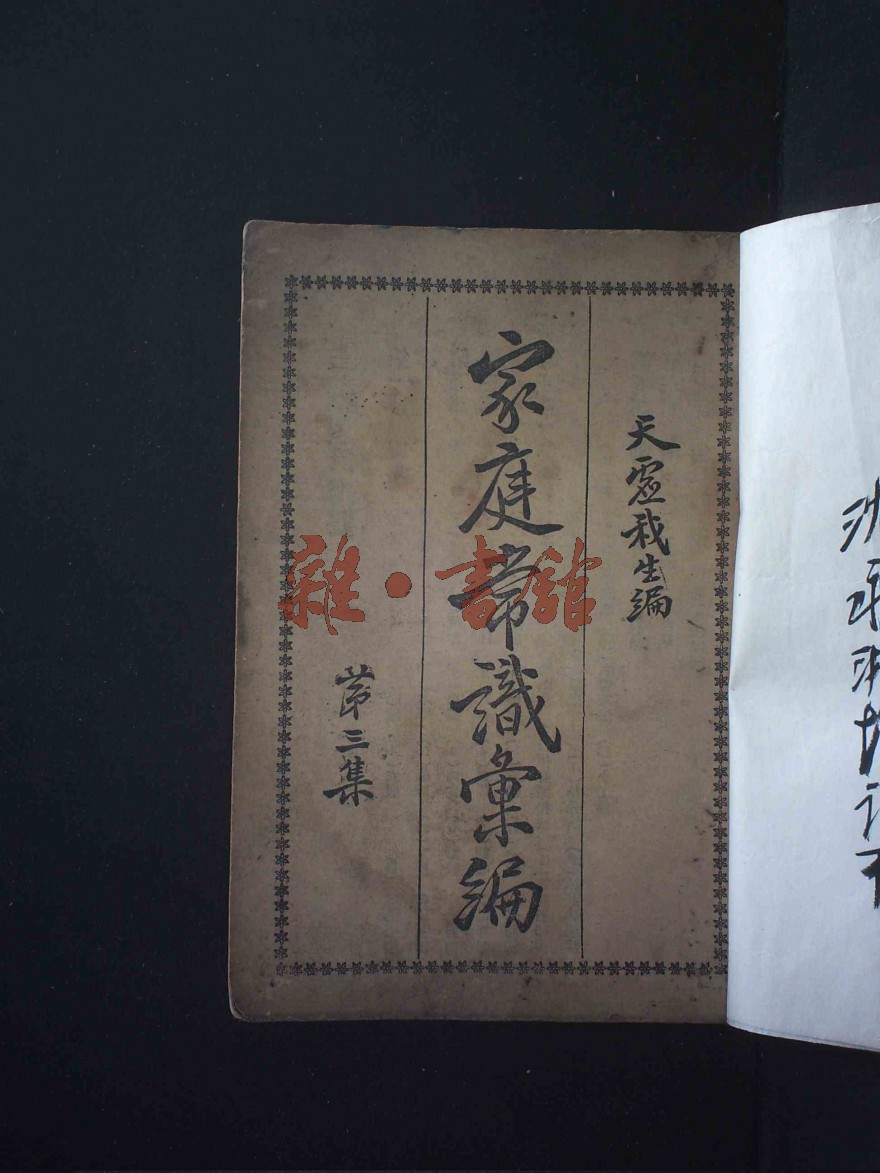 天虛我生編
家庭常識彙編
第三集
雜·書館